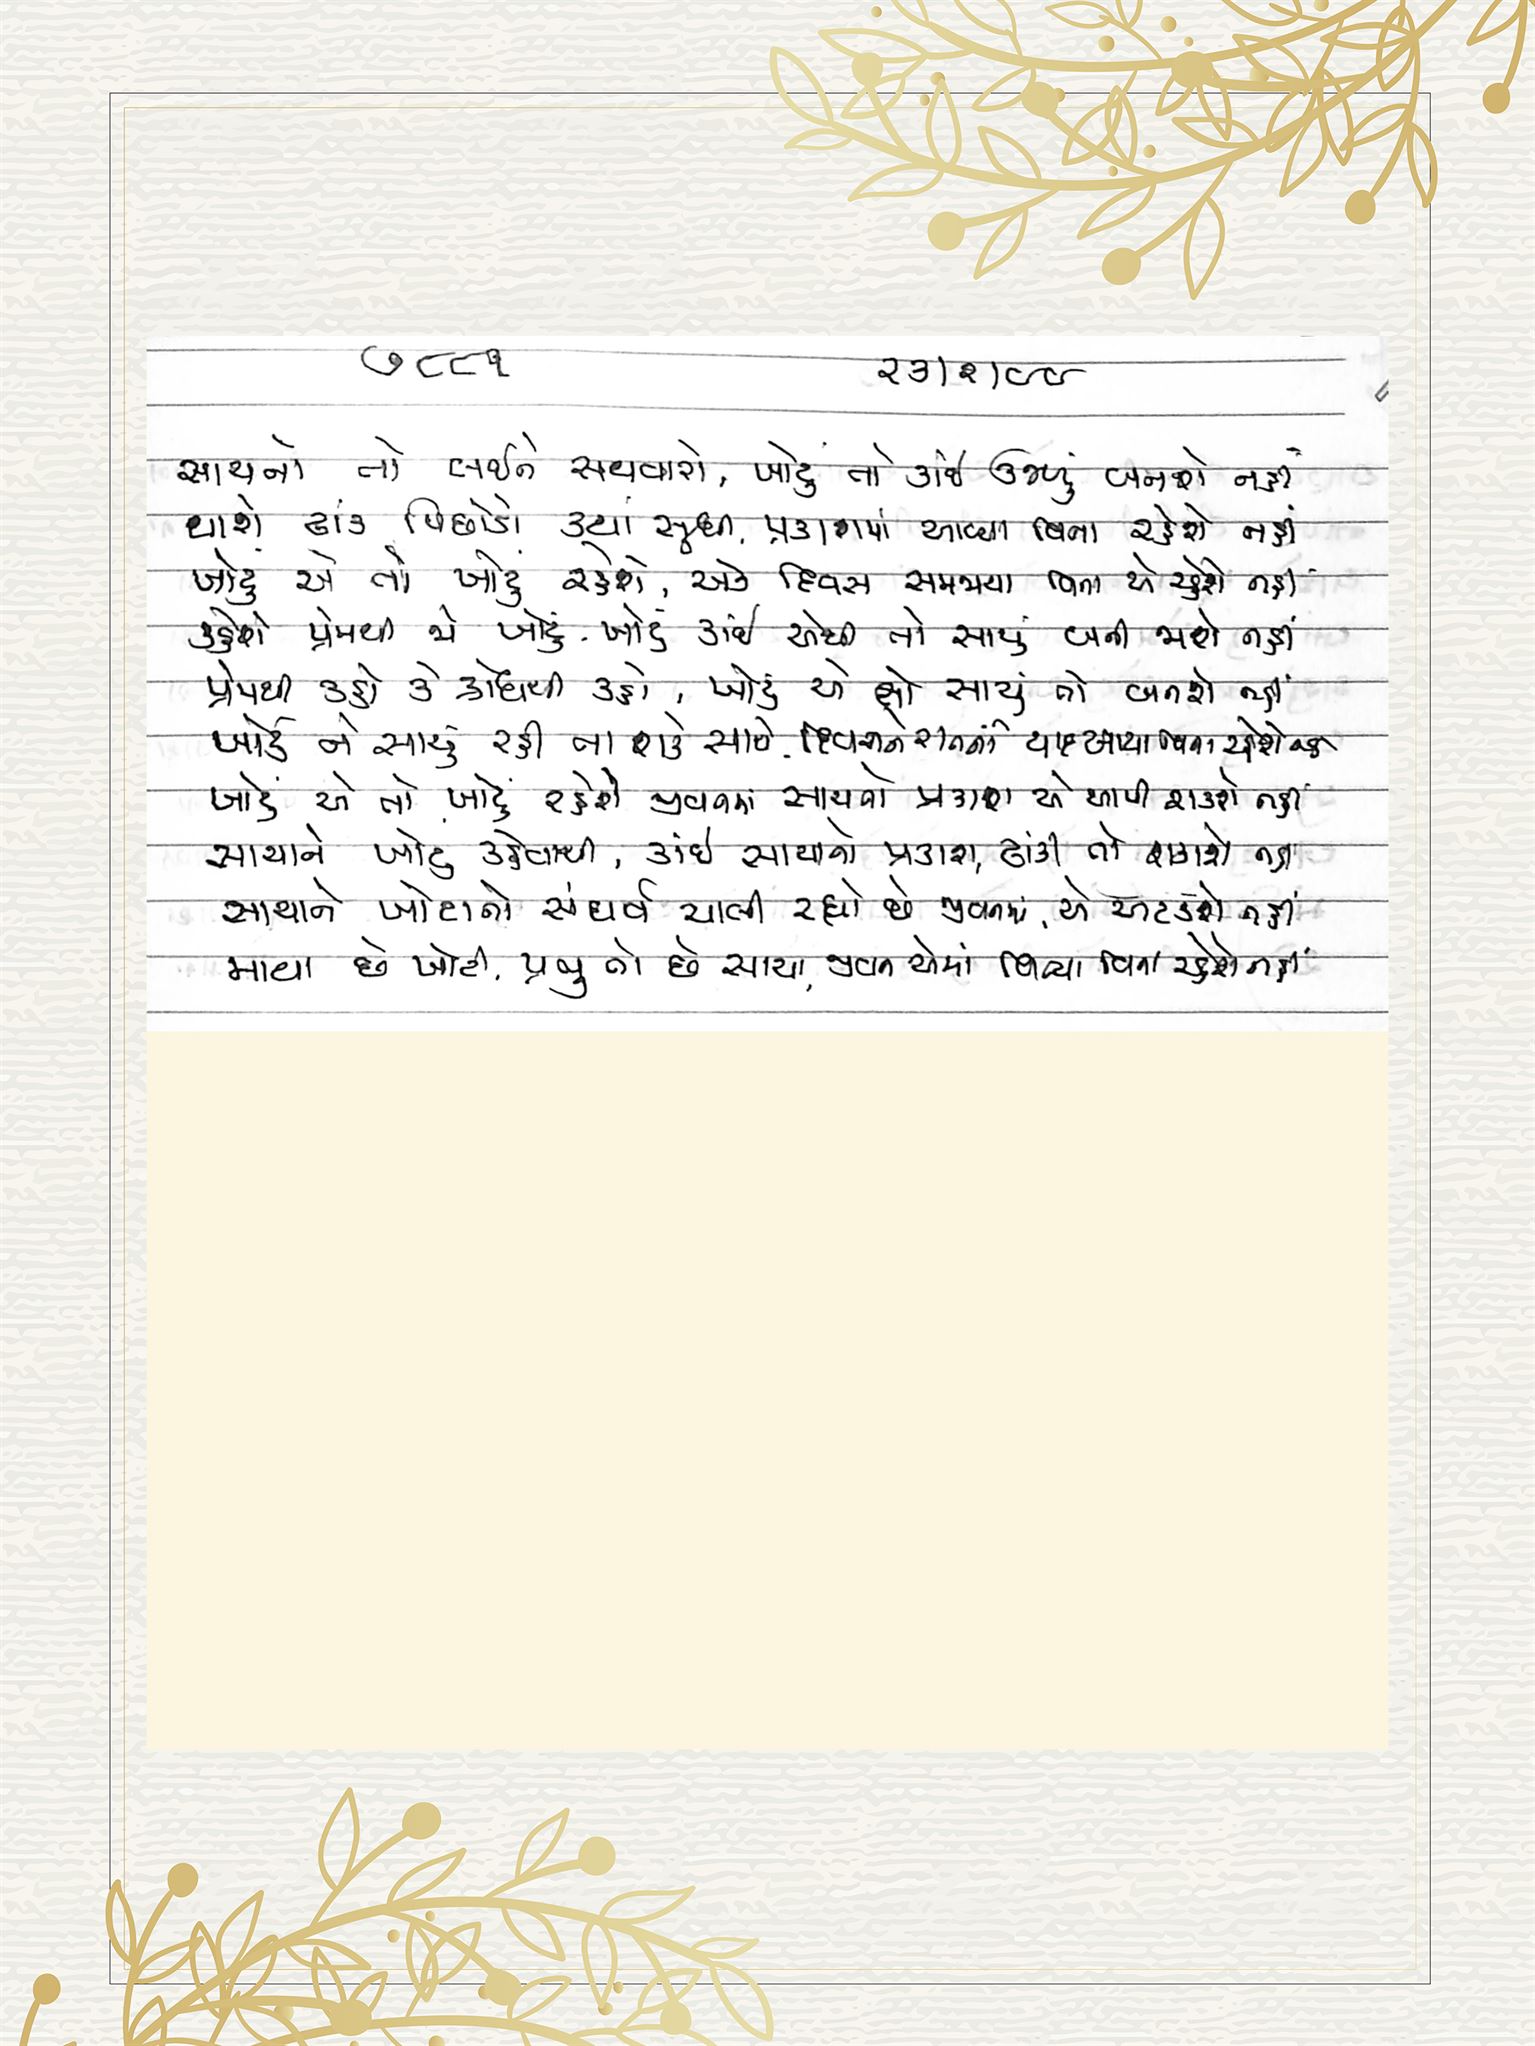 ૭૮૮૧ ૨૩/૧/૯૯
સાચનો તો લઈને સથવારો, ખોટું તો કાંઈ ઉજળું બનશે નહીં
થાશે ઢાંક પિછોડો ક્યાં સૂધી, પ્રકાશમાં આવ્યા વિના રહેશે નહીં
ખોટું એ તો ખોટું રહેશે, એક દિવસ સમજાયા વિના એ રહેશે નહીં
કહેશો પ્રેમથી જો ખોટું, ખોટું કાંઈ એથી તો સાચું બની જાશે નહીં
પ્રેમથી કહો કે ક્રોધથી કહો, ખોટું એ તો સાચું તો બનશે નહીં
ખોટું ને સાચું રહી ના શકે સાથે, યાદ આપ્યા વિના રહેશે નહીં
ખોટું એ તો ખોટું રહેશે જીવનમાં સાચનો પ્રકાશ એ આપી શકશે નહીં
સાચાને ખોટું કહેવાથી, કાંઈ સાચાનો પ્રકાશ, ઢાંકી તો શકાશે નહીં
સાચાને ખોટાનો સંઘર્ષ ચાલી રહ્યો છે જીવનમાં, એ અટકશે નહીં
માયા છે ખોટી, પ્રભુ તો છે સાચા, જીવન એમાં વિત્યા વિના રહેશે નહીં